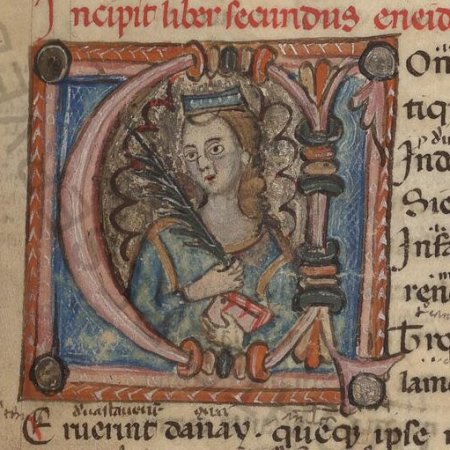 Incipit liber secundus eneid
On
tiq
Ind
Sic
Infa
ren
Tro
lame
Eruerint danay. queq; ipse